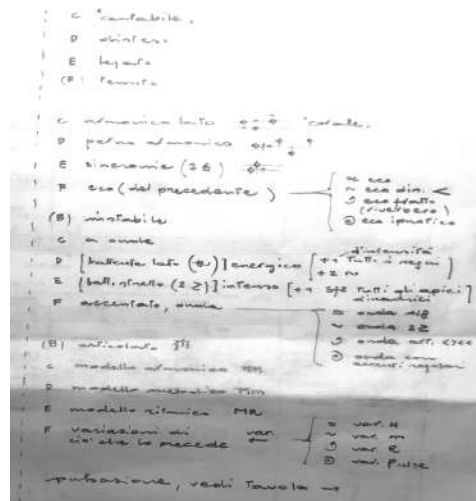 C "cantabile"
D disteso
E legato
(F) tenuto
C armonico lato "corale"
D pedna armonico
E sincronie (2 6)
F eco (del precedente)
∝ eco
~ eco dim. <
eco fratto
(riverbero)
@ eco ipnotico
(B) instabile
C a onde
D [battente lato (#)] energico [++ tutti i segni d'intensità]
+ 2 n
E [batt. stretto (2 2)] intenso [++ sf2 tutti gli apici] dinamici
F accentato, onda
= onda 4/8
~ onda 22
onda att. <><
@ onda con
accenti regolari
(B) articolato
C modello armonico MM
D modello melodico Mm
E modello ritmico MR
F variazioni di var.
ciò che lo precede ←
= var. H
~ var. m
var. R
@ var. Pulse
pulsazione, vedi Tavola →